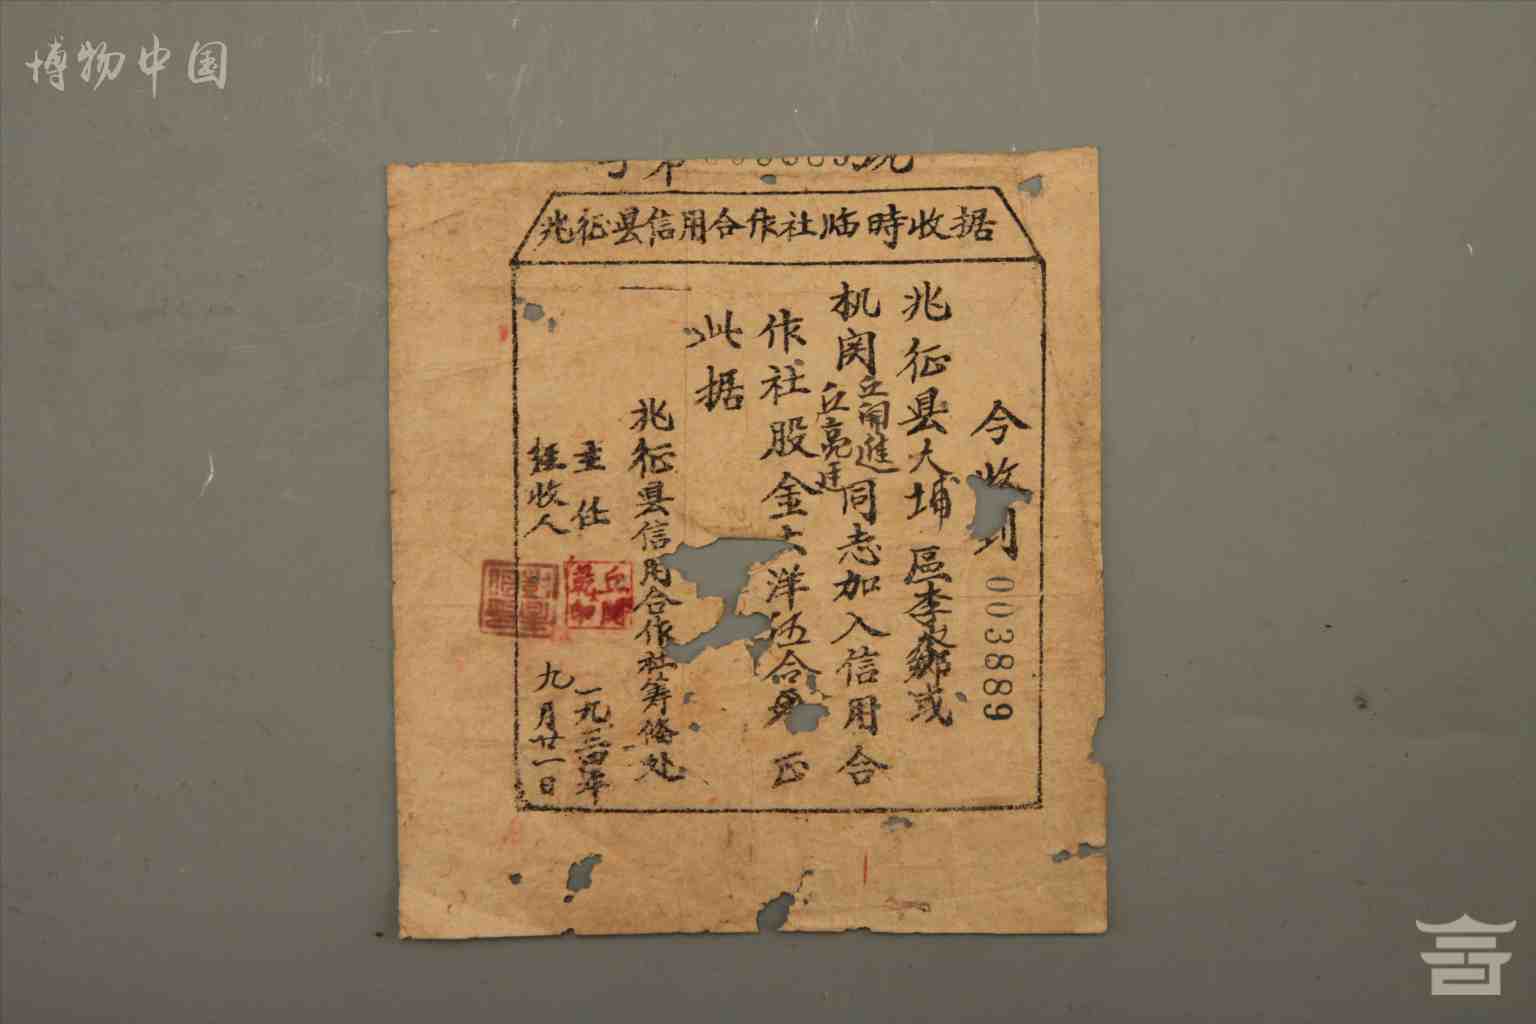 博物中国
兆征县信用合作社临时收据
今收到
003889
兆征县大埔區李 鄉或
机関丘開進丘亮廷同志加入信用合
作社股金大洋伍合 正
此据
兆征县信用合作社筹俻处
主任
经收人
一九三四年
九月廿一日